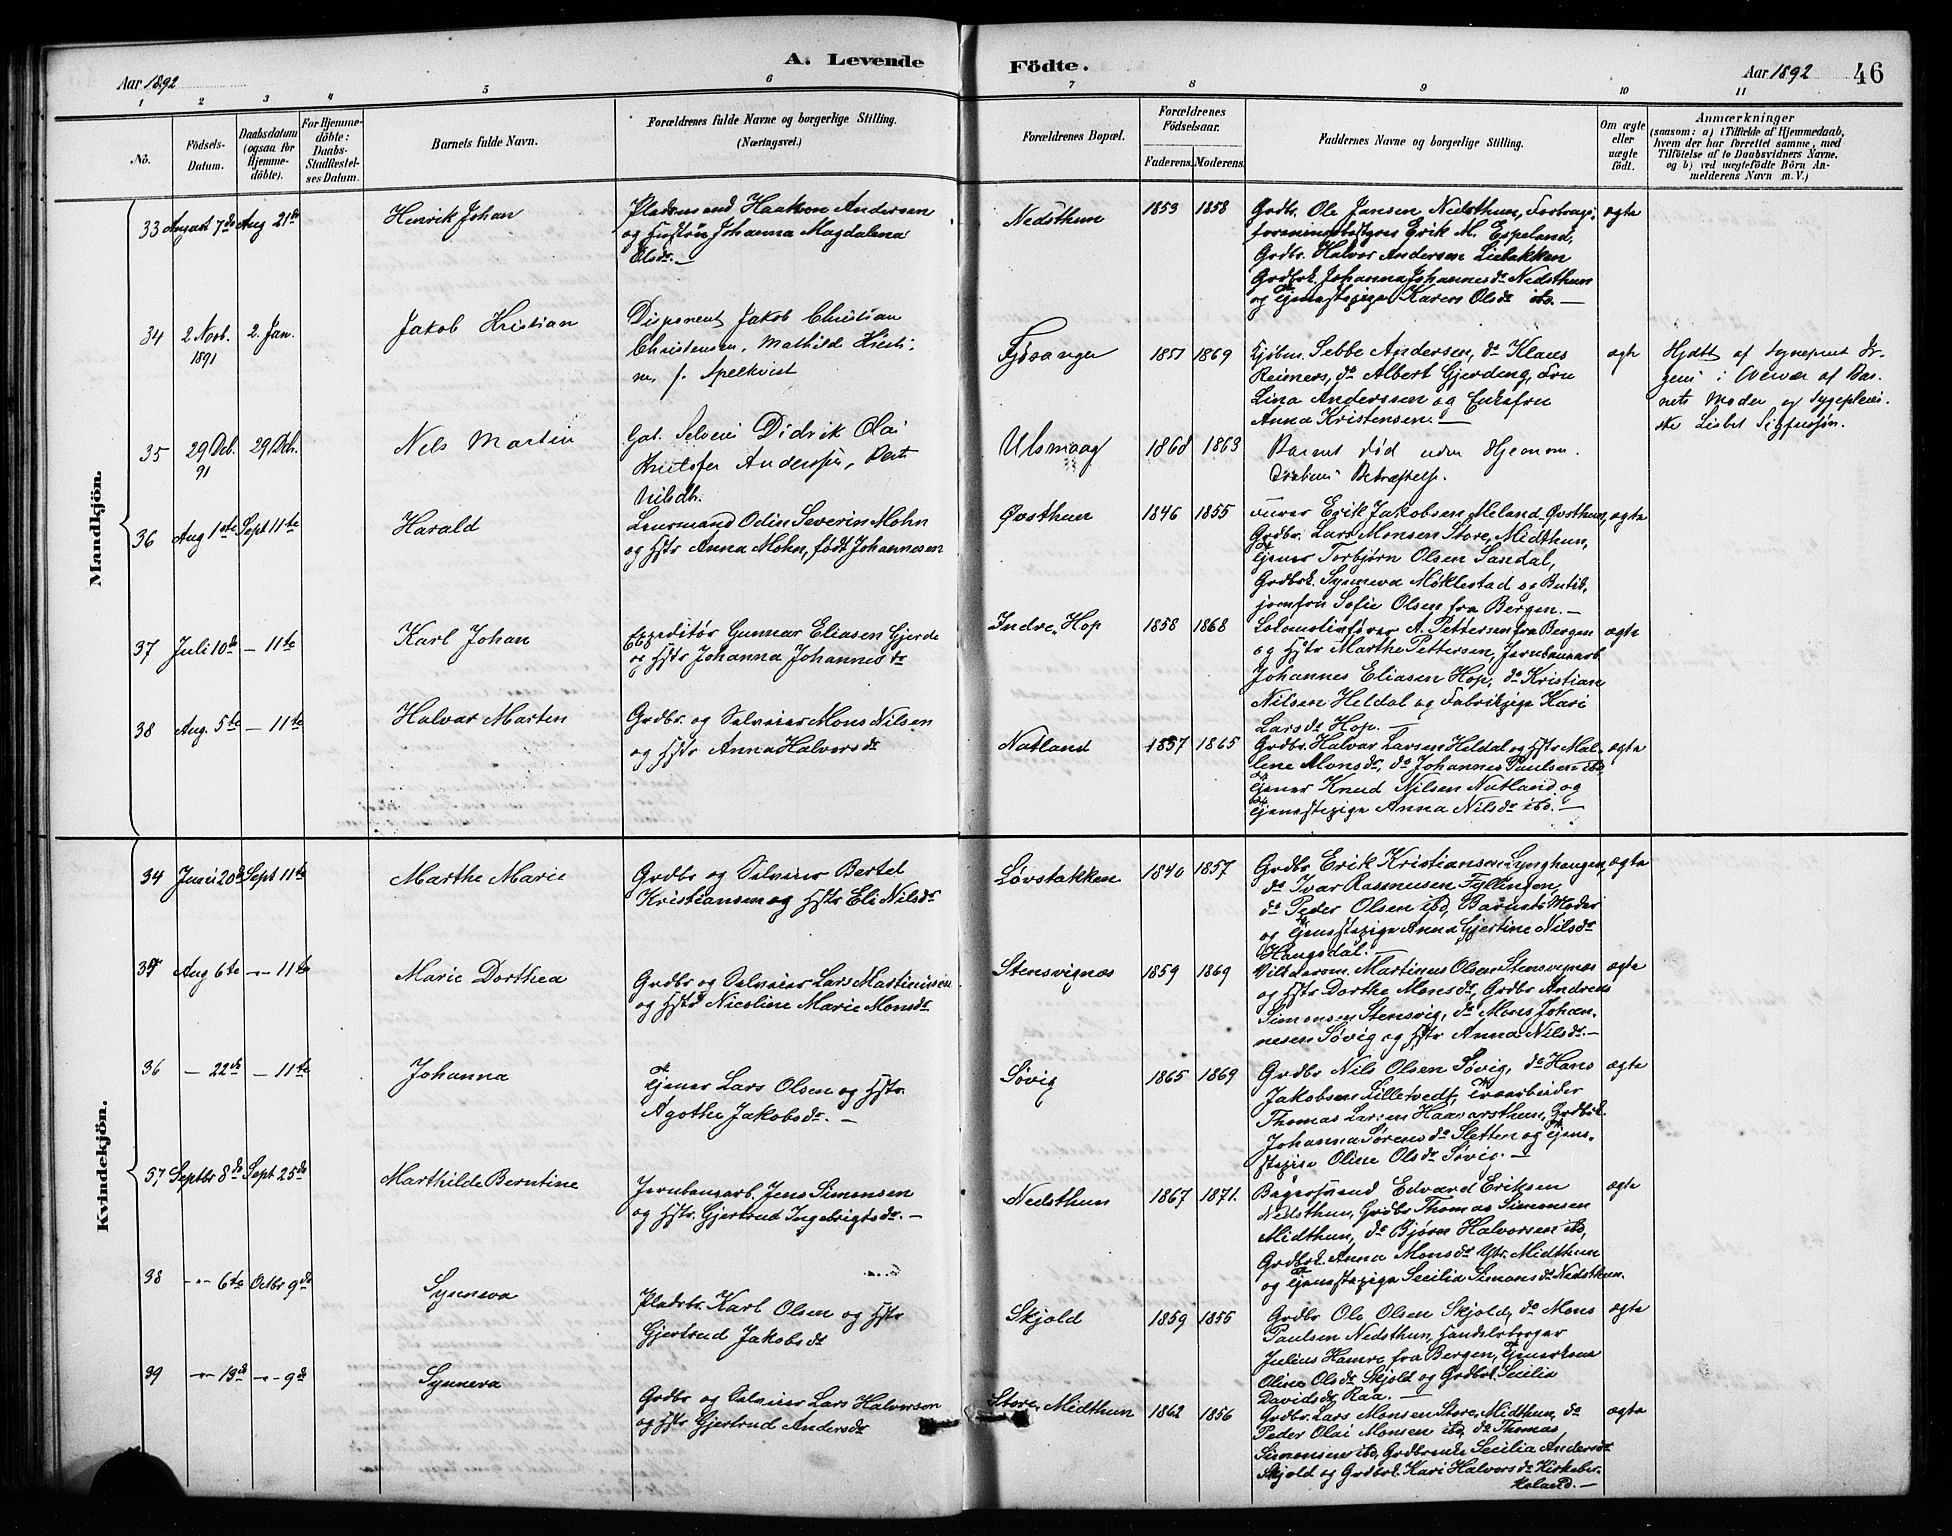 Aar 1892
A. Levende
Fødte.
Aar 1892
46
1 2 3 4 5 6 7 8 9 10 11
No.
Födsels-
Datum.
Daabsdatum
(ogsaa for
Hjemme-
döbte).
For Hjemme-
döbte:
Daabs-
Stadfæstel-
ses Datum.
Barnets fulde Navn.
Forældrenes fulde Navne og borgerlige Stilling.
(Næringsvei.)
Forældrenes Bopæl.
Forældrenes
Födselsaar.
Faderens. Moderens.
Faddernes Navne og borgerlige Stilling.
Om ægte
eller
uægte
födt.
Anmærkninger
(saasom: a) i Tilfælde af Hjemmedaab,
hvem der har forrettet samme, med
Tilföielse af to Daabsvidners Navne,
og b) ved uægtefödte Börn An-
melderens Navn m. V.)
Mandkjön.
33 August 7de Aug 21de
Henrik Johan
Pladsmand Haakon Andersen
og Hustru Johanna Magdalena
Olsdr.
Nedsthun
1859 1858
Grdbr. Ole Jansen Nedsthun,
Erik M. Espeland,
Grdbr. Halvor Andersen Liebakken
Grdbrk. Johanna Johannesdr Nedsthun
og Tjenestepige Karen Olsdr ibd. —
ægte
34 2 Novb. 2. Jan.
1891
Jakob Kristian
Disponent Jakob Christian
Christensen, Mathild Kristi-
ne, f. Apelkvist
Fjøsanger
1851 1869
Kjøbm. Sebbe Andersen, do Klaus
Reimers, do Albert Gjerding, Fru
Lina Anderssen og Enkefru
Anna Kristensen —
ægte
Hjdbt af
i Overvær af Bar-
nets Moder og Sygepleier-
ske Lisbet
35 29 Deb. 29 Deb.
91
Nels Martin
Selveier Didrik Olai
Kristofer Andersen, Berte
Nilsdtr.
Ulsmaag
1868 1863
Barnet død uden Hjemme-
daabens Bekræftelse.
36 Aug 1ste Sept 11te
Harald
Lensmand Odin Severin Mohn
og Hstr Anna Mohn, født Johannesen
Øvsthun
1846 1855
Erik Jakobsen Meland Øvsthun,
Grdbr. Lars Monsen Store, Midthun,
Tjener Torbjørn Olsen Sandal,
Grdbrk. Synneva Møklestad og Butik-
jomfru Sofie Olsen fra Bergen. —
ægte
37 Juli 10de — 11te
Karl Johan
Expeditør Gunnar Eliasen Gjerde
og Hstr Johanna Johannesdr
Indre Hop
1858 1868
Lokomotivfører A. Pettersen fra Bergen
og Hstr Marthe Pettersen, Jernbanearb.
Johannes Eliasen Hop, do Kristian
Nilsen Heldal og Fabrikpige Kari
Larsdr Hop. —
ægte
38 Aug. 5te — 11te
Halvar Martin
Grdbr. og Selveier Mons Nilsen
og Hstr Anna Halversdr
Natland
1857 1865
Grdbr. Halvar Larsen Heldal og Hstr Mal-
lene Monsdr, do Johannes Paulsen ibd,
Tjener Knud Nilsen Natland og
Tjenestepige Anna Nilsdr ibd. —
ægte
Kvindekjön.
34 Juni 20de Sept 11te
Marthe Marie
Grdbr og Selveier Bertel
Kristiansen og Hstr Eli Nilsdr
Løvstakken
1840 1857
Grdbr Erik Kristiansen Lynghaugen,
do Ivar Rasmusen Fyllingen,
do Peder Olsen ibd, Barnets Moder
og Tjenestepige Anna Gjertine Nilsdr
Haugsdal.
ægte
35 Aug 6te —"— 11te
Marie Dorthea
Grdbr og Selveier Lars Martinusen
og Hstr Nicoline Marie Monsdr
Stensvignæs
1859 1869
Martinus Olsen Stensvignæs
og Hstr Dorthe Monsdr, Grdbr Andreas
Simonsen Stensvig, do Mons Johan-
nesen Søvig og Hstr Anna Nilsdr. —
ægte
36 — 22de — 11te
Johanna
Tjener Lars Olsen og Hstr.
Agothe Jakobsdr. —
Søvig
1865 1869
Grdbr Nils Olsen Søvig, do Hans
Jakobsen Lilletvedt,
Thomas Larsen Haavarsthun, Grdbrk.
Johanna Sørensdr Sletten og Tjene-
stepige Oline Olsdr Søvig. —
ægte
37 Septbr 8de Sept 25de
Marthilde Berntine
Jernbanearb. Jens Simonsen
og Hstr. Gjertrud Ingebrigtsdr. —
Nedsthun
1867 1871.
Bagersvend Edvard Eriksen
Nedsthun, Grdbr Thomas Simonsen
Midthun, do Bjørn Halvorsen ibd,
Grdbrk. Anna Monsdr Ytr. Midthun
og Tjenestepige Secilia Simonsdr Nedsthun.
ægte
38 —"— 6te Octbr 9de
Synneva
Pladsbr. Karl Olsen og Hstr
Gjertrud Jakobsdr
Skjold
1859 1855
Grdbr Ole Olsen Skjold, do Mons
Paulsen Nedsthun, Handelsborger
Julius Hamre fra Bergen,
Oline Olsdr Skjold og Grdbrk. Secilia
Davidsdr Raa. —
ægte
39 —"— 13de —"— 9de
Synneva
Grdbr og Selveier Lars Halvorson
og Hstr Gjertrud Andersdr
Store, Midthun
1862 1856
Grdbr. Lars Monsen Store, Midthun, do
Peder Olai Monsen ibd, do Thomas
Simonsen ibd, Secilia Andersdr
Skjold og Grdbrk. Kari Halversdr Kirkebr-
Holand. —
ægte